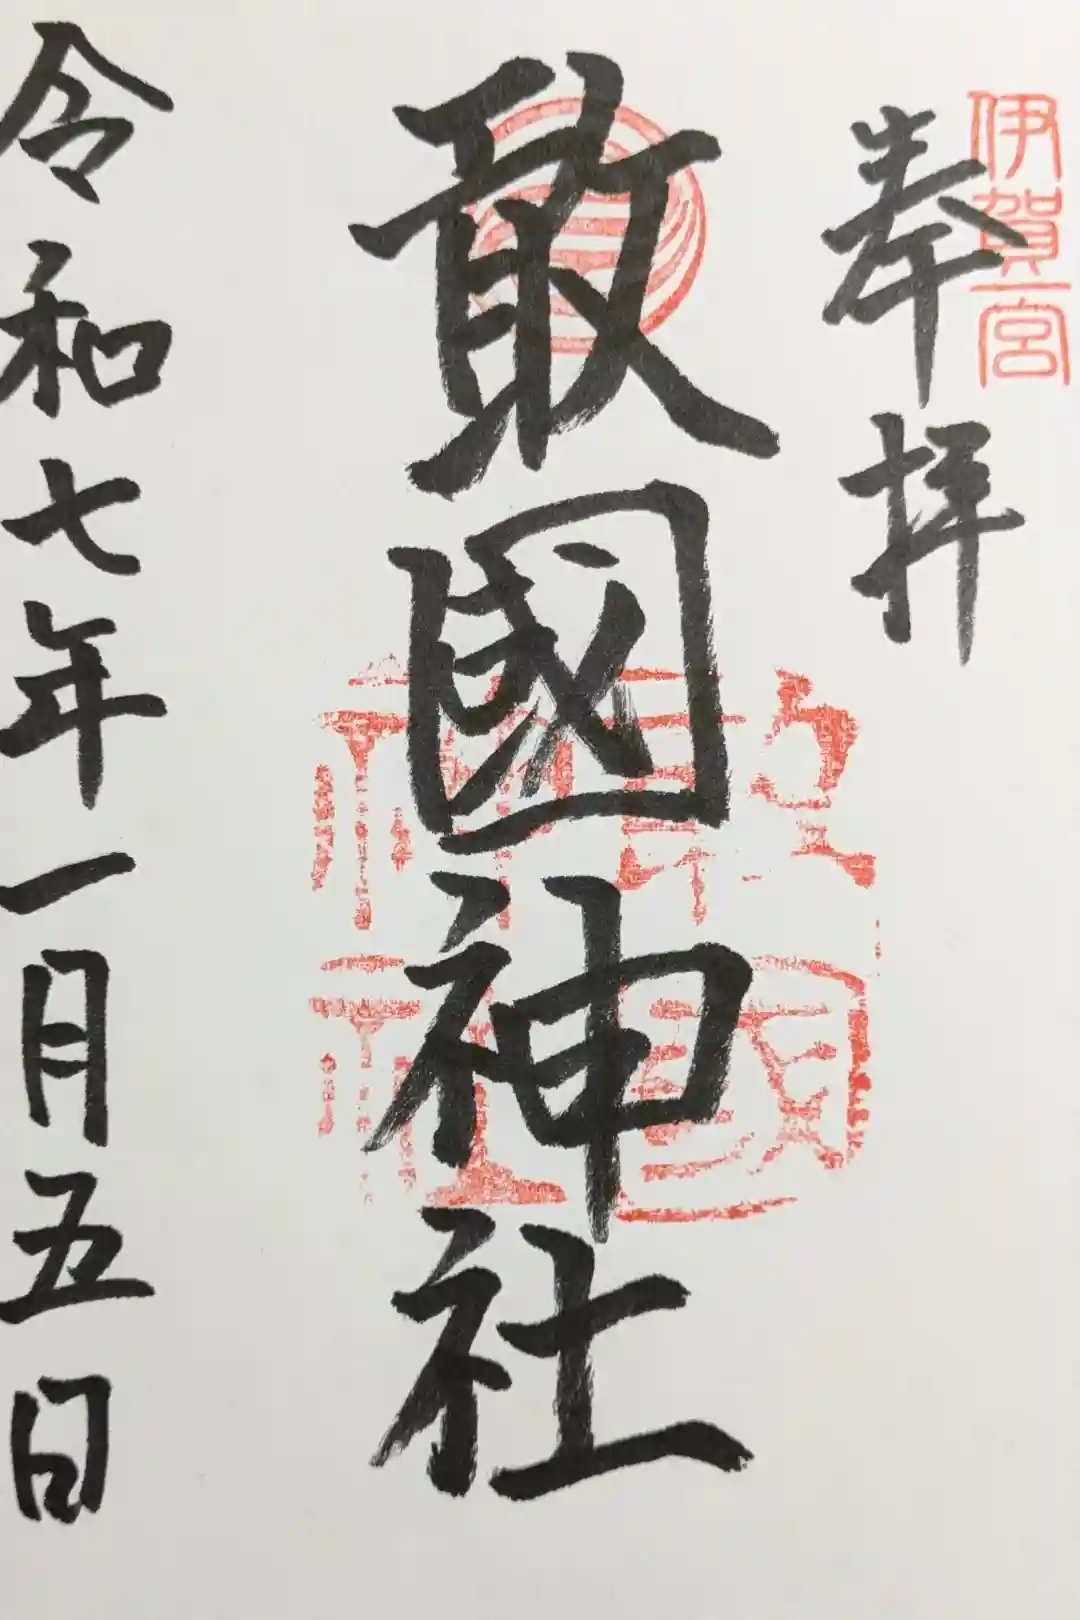 伊賀一宮
奉拝
敢國神社
敢國神社
令和七年一月五日